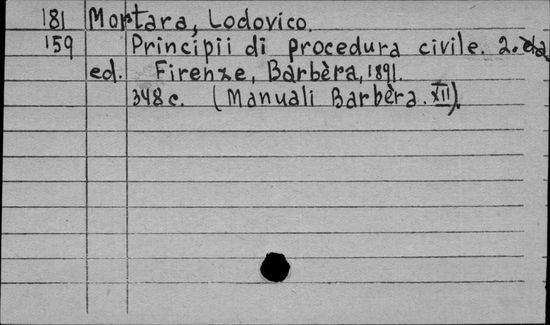 181 Mortara, Lodovico.
159 Principii di procedura civile. 2.a
ed. Firenze, Barbèra, 1891.
348 c. (Manuali Barbèra. XII).